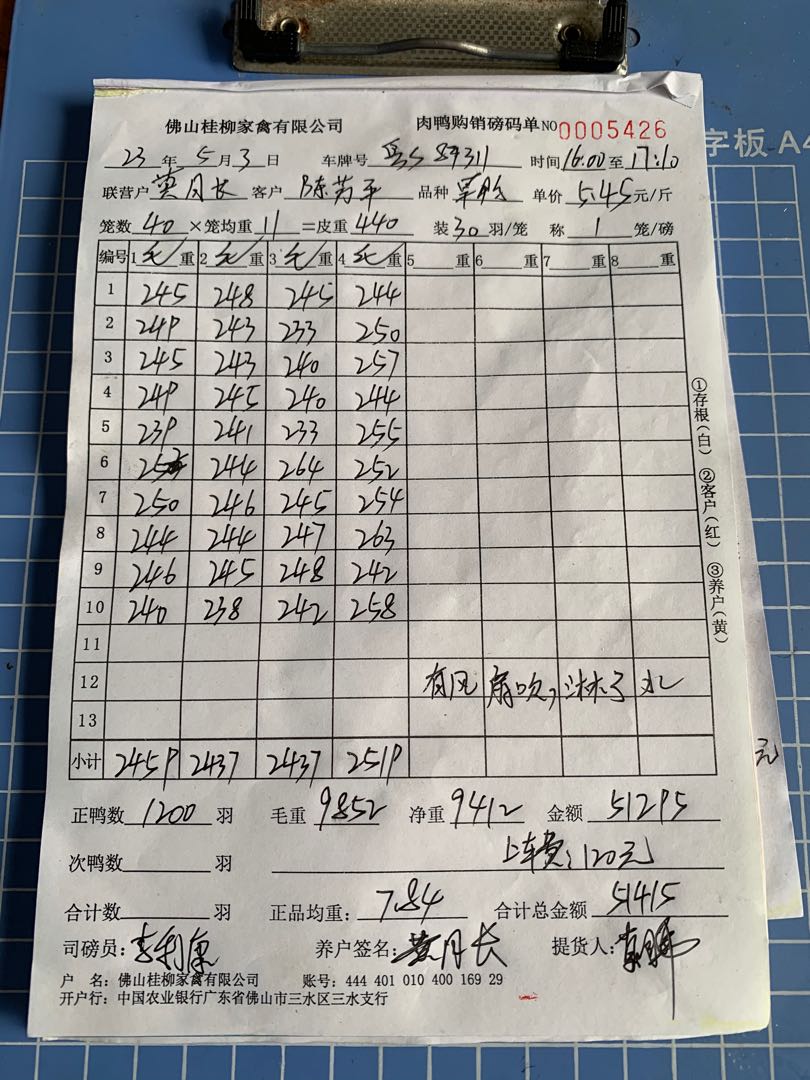 佛山桂柳家禽有限公司 肉鸭购销磅码单 NO 0005426
23年5月3日 车牌号 粤S 84311 时间16:00至17:10
联营户 黄月长 客户 陈芳平 品种 单价 5.45 元/斤
笼数 40 ×笼均重 11 =皮重 440 装 30 羽/笼 称 1 笼/磅
编号 1 毛 重 2 毛 重 3 毛 重 4 毛 重 5 重 6 重 7 重 8 重
1 245 248 245 244
2 249 243 233 250
3 245 243 240 257
4 249 245 240 244
5 239 241 233 255
6 244 264 252
7 250 246 245 254
8 244 244 247 263
9 246 245 248 242
10 240 238 242 258
11
12 有风扇吹,淋了水
13
小计 2459 2437 2437 2519
正鸭数 1200 羽 毛重 9852 净重 9412 金额 51295
次鸭数 羽 上车费:120元
合计数 羽 正品均重: 7.84 合计总金额 51415
司磅员:李利康 养户签名:黄月长 提货人:
户 名:佛山桂柳家禽有限公司 账号:444 401 010 400 169 29
开户行:中国农业银行广东省佛山市三水区三水支行
①存根(白) ②客户(红) ③养户(黄)
字板 A4
元